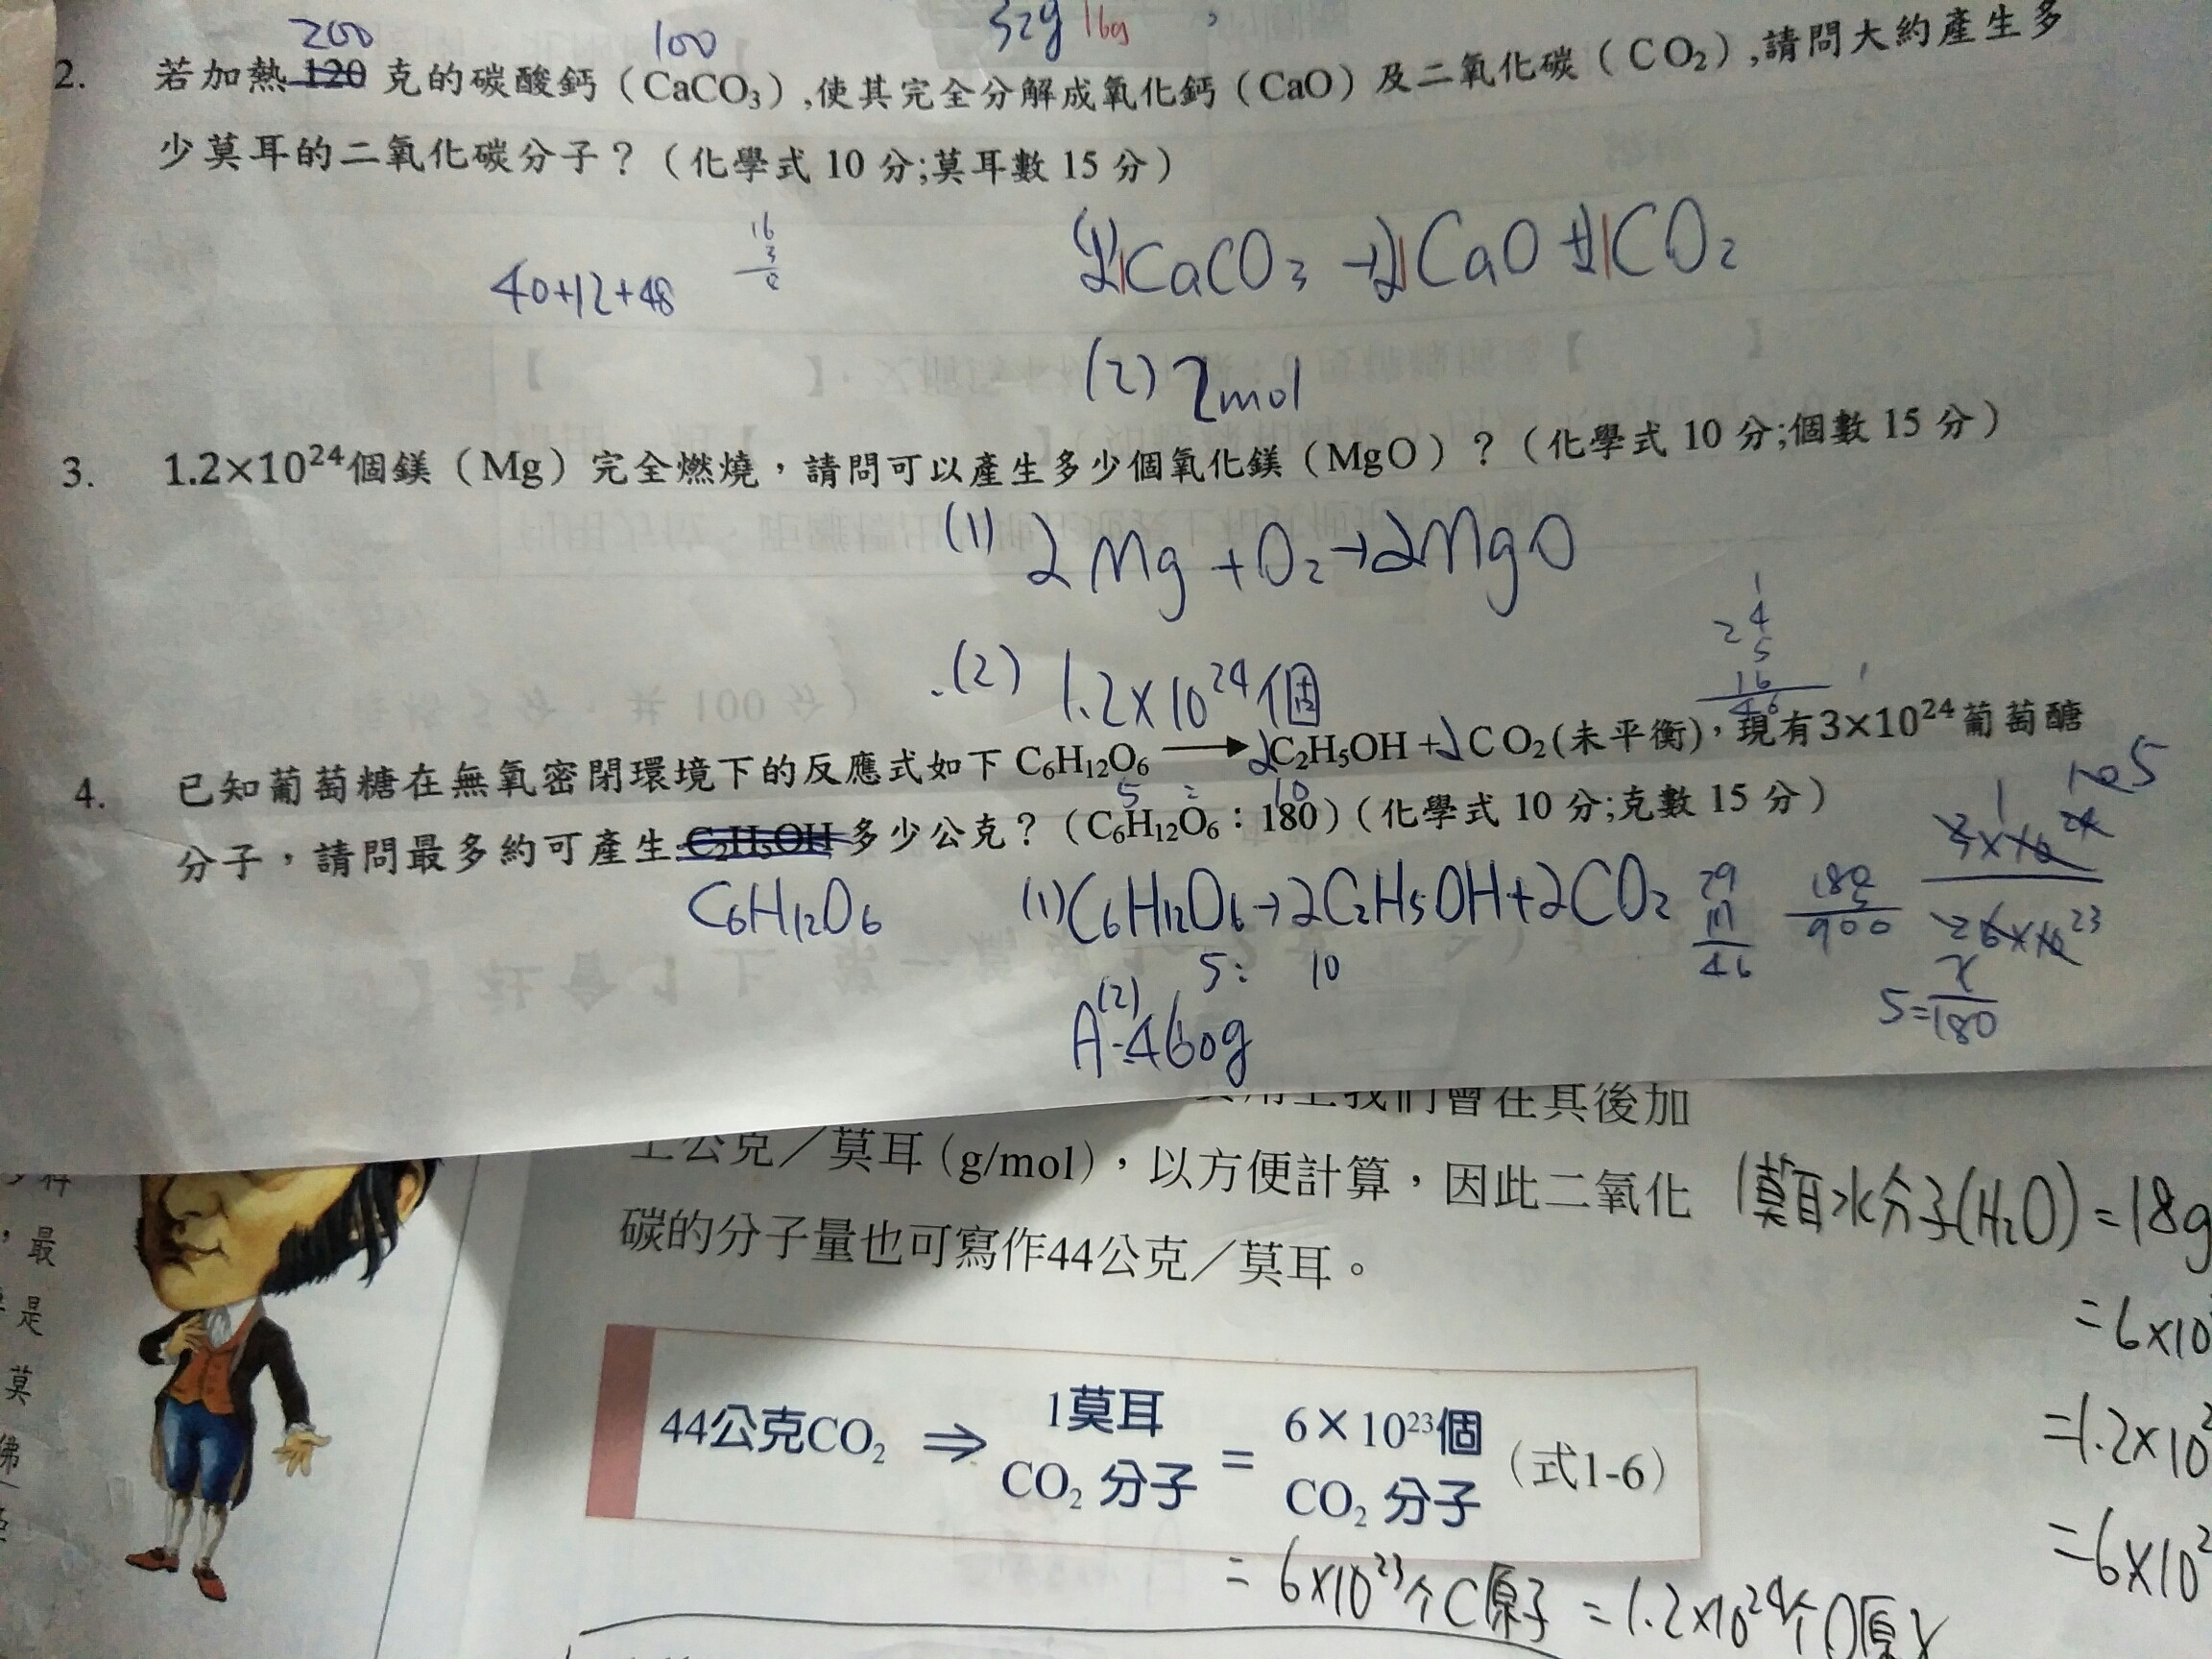 200
100
32g 16g
2. 若加熱 120 克的碳酸鈣（CaCO₃）,使其完全分解成氧化鈣（CaO）及二氧化碳（CO₂）,請問大約產生多
少莫耳的二氧化碳分子？（化學式 10 分;莫耳數 15 分）
40+12+48
16
3
CaCO₃ → CaO + CO₂
(2) 2mol
3. 1.2×10²⁴個鎂（Mg）完全燃燒，請問可以產生多少個氧化鎂（MgO）？（化學式 10 分;個數 15 分）
(1) 2Mg + O₂ → 2MgO
(2) 1.2×10²⁴個
24
5
16
46
4. 已知葡萄糖在無氧密閉環境下的反應式如下 C₆H₁₂O₆ → 2C₂H₅OH + 2CO₂(未平衡)，現有3×10²⁴葡萄醣
5 : 10
分子，請問最多約可產生 C₂H₅OH 多少公克？（C₆H₁₂O₆：180）（化學式 10 分;克數 15 分）
C₆H₁₂O₆
(1) C₆H₁₂O₆ → 2C₂H₅OH + 2CO₂
5: 10
(2)
A:460g
29
17
46
180
5
900
5=x/180
上公克／莫耳（g/mol），以方便計算，因此二氧化
碳的分子量也可寫作44公克／莫耳。
1莫耳水分子(H₂O)=18g
=6×10
=1.2×10
=6×10
44公克CO₂ ⇒ 1莫耳 CO₂ 分子 = 6×10²³個 CO₂ 分子 （式1-6）
= 6×10²³个C原子 = 1.2×10²⁴个O原子
最
是
莫
佛